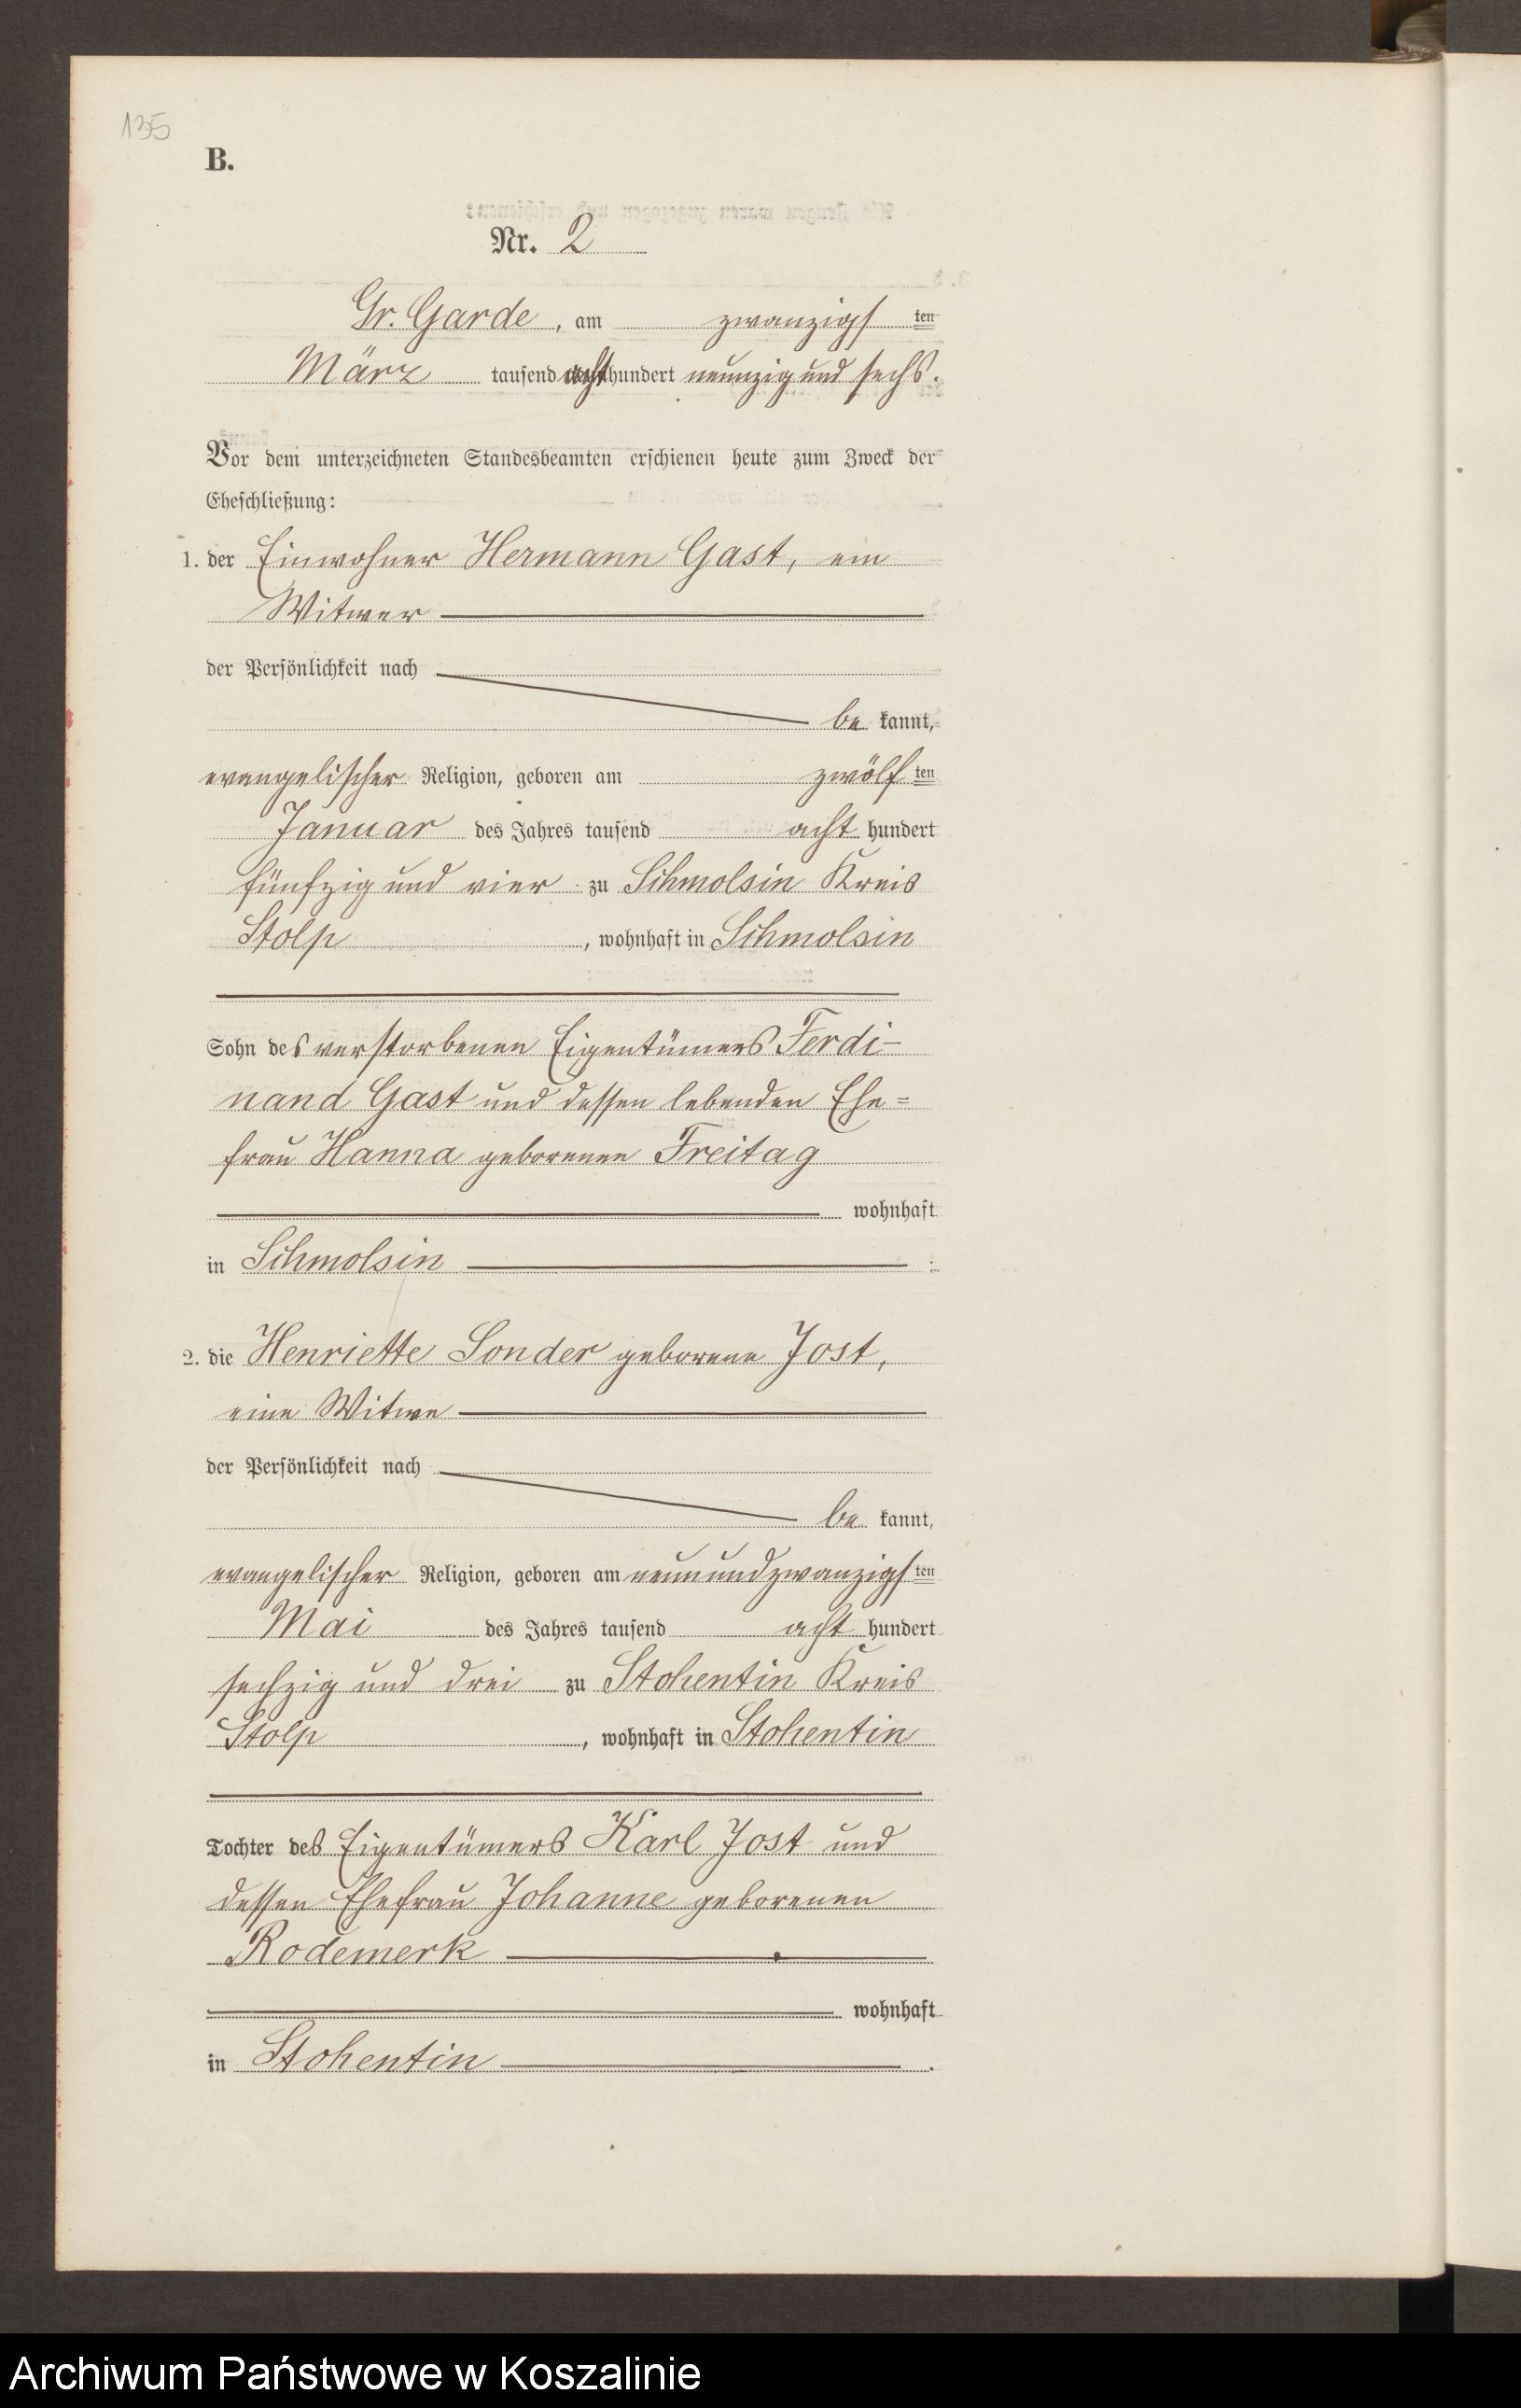 135
B.
Nr. 2
Gr. Garde, am zwanzigsten
März tausend achthundert neunzig und sechs.
Vor dem unterzeichneten Standesbeamten erschienen heute zum Zweck der
Eheschließung:
1. der Einwohner Hermann Gast, ein
Witwer
der Persönlichkeit nach
be kannt,
evangelischer Religion, geboren am zwölf ten
Januar des Jahres tausend acht hundert
fünfzig und vier zu Schmolsin Kreis
Stolp, wohnhaft in Schmolsin
Sohn des verstorbenen Eigentümers Ferdi-
nand Gast und dessen lebenden Ehe=
frau Hanna geborenen Freitag
wohnhaft
in Schmolsin ;
2. die Henriette Sonder geborene Jost,
eine Witwe
der Persönlichkeit nach
be kannt,
evangelischer Religion, geboren am neunundzwanzigsten
Mai des Jahres tausend acht hundert
sechzig und drei zu Stohentin Kreis
Stolp, wohnhaft in Stohentin
Tochter des Eigentümers Karl Jost und
dessen Ehefrau Johanne geborenen
Rodemerk
wohnhaft
in Stohentin .
Archiwum Państwowe w Koszalinie